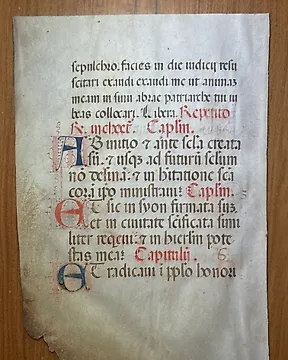 sepulchro. facies in die iudicij resu
scitari exaudi exaudi me ut animaz
meam in sinu abrae patriarche tui iu
beas collocari. Libera. Repetitio
R. Caplm.
AB initio & ante scla creata
su. & usqz ad futurū seclum
nō desinā. & in hitatione sca
corā ipo ministraui. Caplm.
Et sic in syon firmata suz
et in ciuitate scificata simi
liter requieui. & in hierlm pote
stas mea. Capitulū.
Et radicaui i pplo honori